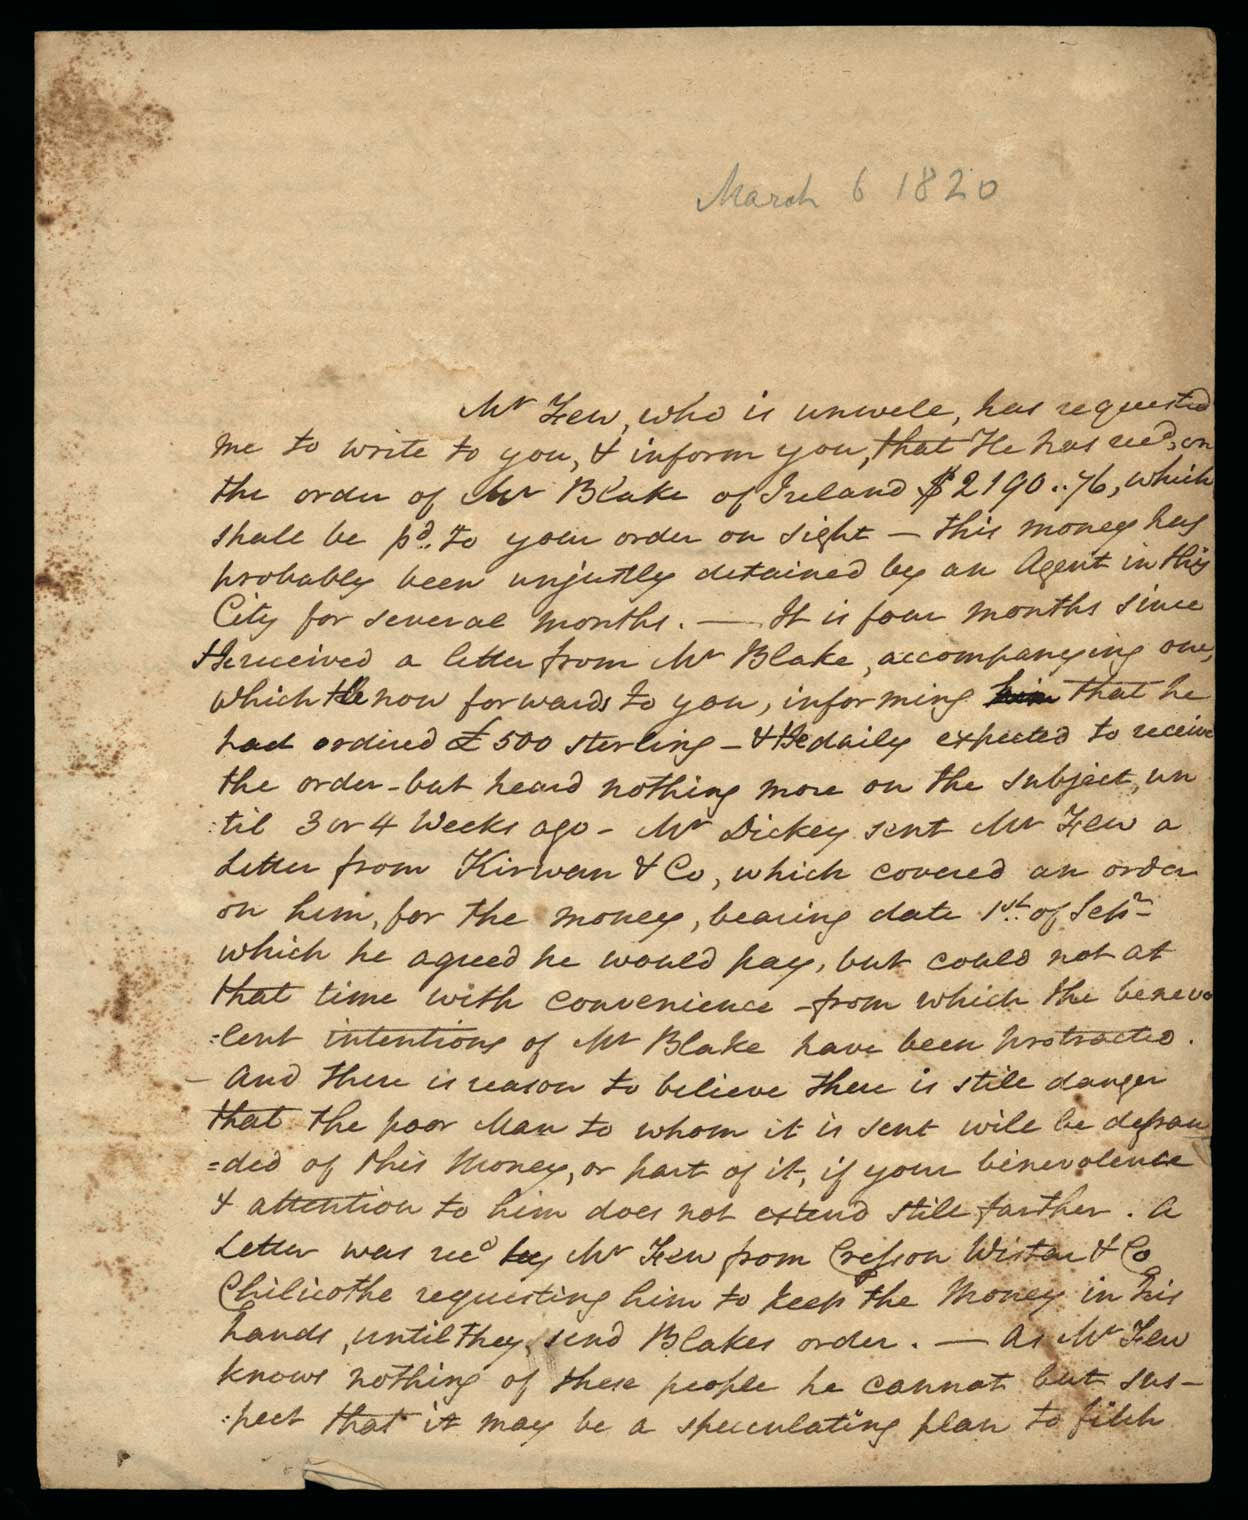 March 6 1820
Mr Few, who is unwell, has requested
me to write to you, & inform you, that He has recd, on
the order of Mr Blake of Ireland $2190..76, which
shall be pd. to your order on sight — this money has
probably been unjustly detained by an Agent in this
City for several months. — It is four months since
He received a letter from Mr Blake, accompanying one,
which He now forwards to you, informing him that he
had ordired £500 sterling — & He daily expected to receive
the order - but heard nothing more on the subject, un
:til 3 or 4 Weeks ago - Mr Dickey sent Mr Few a
Letter from Kirwan & Co, which covered an order
on him, for the money, bearing date 1st. of Sepr -
which he agreed he would pay, but could not at
that time with convenience - from which the benevo
:lent intentions of Mr Blake have been protracted.
— And there is reason to believe there is still danger
that the poor Man to whom it is sent will be defrau
=ded of this Money, or part of it, if your benevolence
& attention to him does not extend still farther. A
Letter was recd by Mr Few from Cresson Wistar & Co
Chilicothe requesting him to keep the Money in his
hands, until they send Blakes order. — As Mr Few
knows nothing of these people he cannot but sus-
:pect that it may be a speculating plan to filch